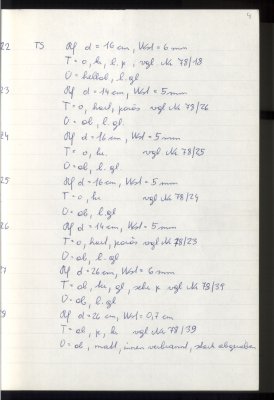 4
22 TS Rf d = 16 cm, Wst = 6 mm
T = o, h, l, p, vgl Nr 78/18
O = hellob, l. gl
23 Rf d = 14 cm, Wst = 5 mm
T = o, hart, porös vgl Nr 78/26
O = ob, l. gl.
24 Rf d = 16 cm, Wst = 5 mm
T = o, hr. vgl Nr 78/25
O = ob, l. gl
25 Rf d = 16 cm, Wst = 5 mm
T = o, hr vgl Nr 78/24
O = ob, l. gl
26 Rf d = 14 cm, Wst = 5 mm
T = o, hart, porös vgl Nr 78/23
O = ob, l. gl
7 Rf d = 26 cm, Wst = 6 mm
T = ob, hr, gl, sehr p vgl Nr 78/39
O = ob, l. gl
8 Rf d = 26 cm, Wst = 0,7 cm
T = ob, p, hr vgl Nr 78/39
O = ob, matt, innen verbrannt, stark abgerieben